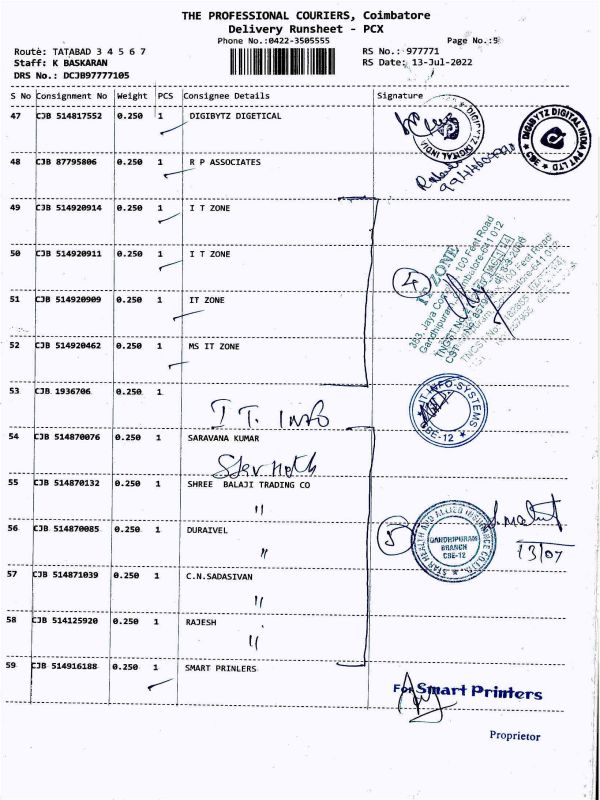 THE PROFESSIONAL COURIERS, Coimbatore
Delivery Runsheet - PCX
Phone No.:0422-3505555 Page No.:5
Route: TATABAD 3 4 5 6 7 RS No.: 977771
Staff: K BASKARAN RS Date: 13-Jul-2022
DRS No.: DCJB97777105
S No Consignment No Weight PCS Consignee Details Signature
47 CJB 514817552 0.250 1 DIGIBYTZ DIGETICAL
DIGIBYTZ DIGITAL INDIA PVT LTD
CBE - 12
48 CJB 87795806 0.250 1 R P ASSOCIATES
49 CJB 514920914 0.250 1 I T ZONE
50 CJB 514920911 0.250 1 I T ZONE
4
IT ZONE
51 CJB 514920909 0.250 1 IT ZONE
52 CJB 514920462 0.250 1 MS IT ZONE
53 CJB 1936706 0.250 1
I T. INFO
IT INFO-SYSTEMS
CBE-12
54 CJB 514870076 0.250 1 SARAVANA KUMAR
Star Health
55 CJB 514870132 0.250 1 SHREE BALAJI TRADING CO
"
56 CJB 514870085 0.250 1 DURAIVEL
"
5
STAR HEALTH AND ALLIED INSURANCE CO.LTD.
GANDHIPURAM
BRANCH
CBE-12
13/07
57 CJB 514871039 0.250 1 C.N.SADASIVAN
"
58 CJB 514125920 0.250 1 RAJESH
"
59 CJB 514916188 0.250 1 SMART PRINLERS
For Smart Printers
Proprietor